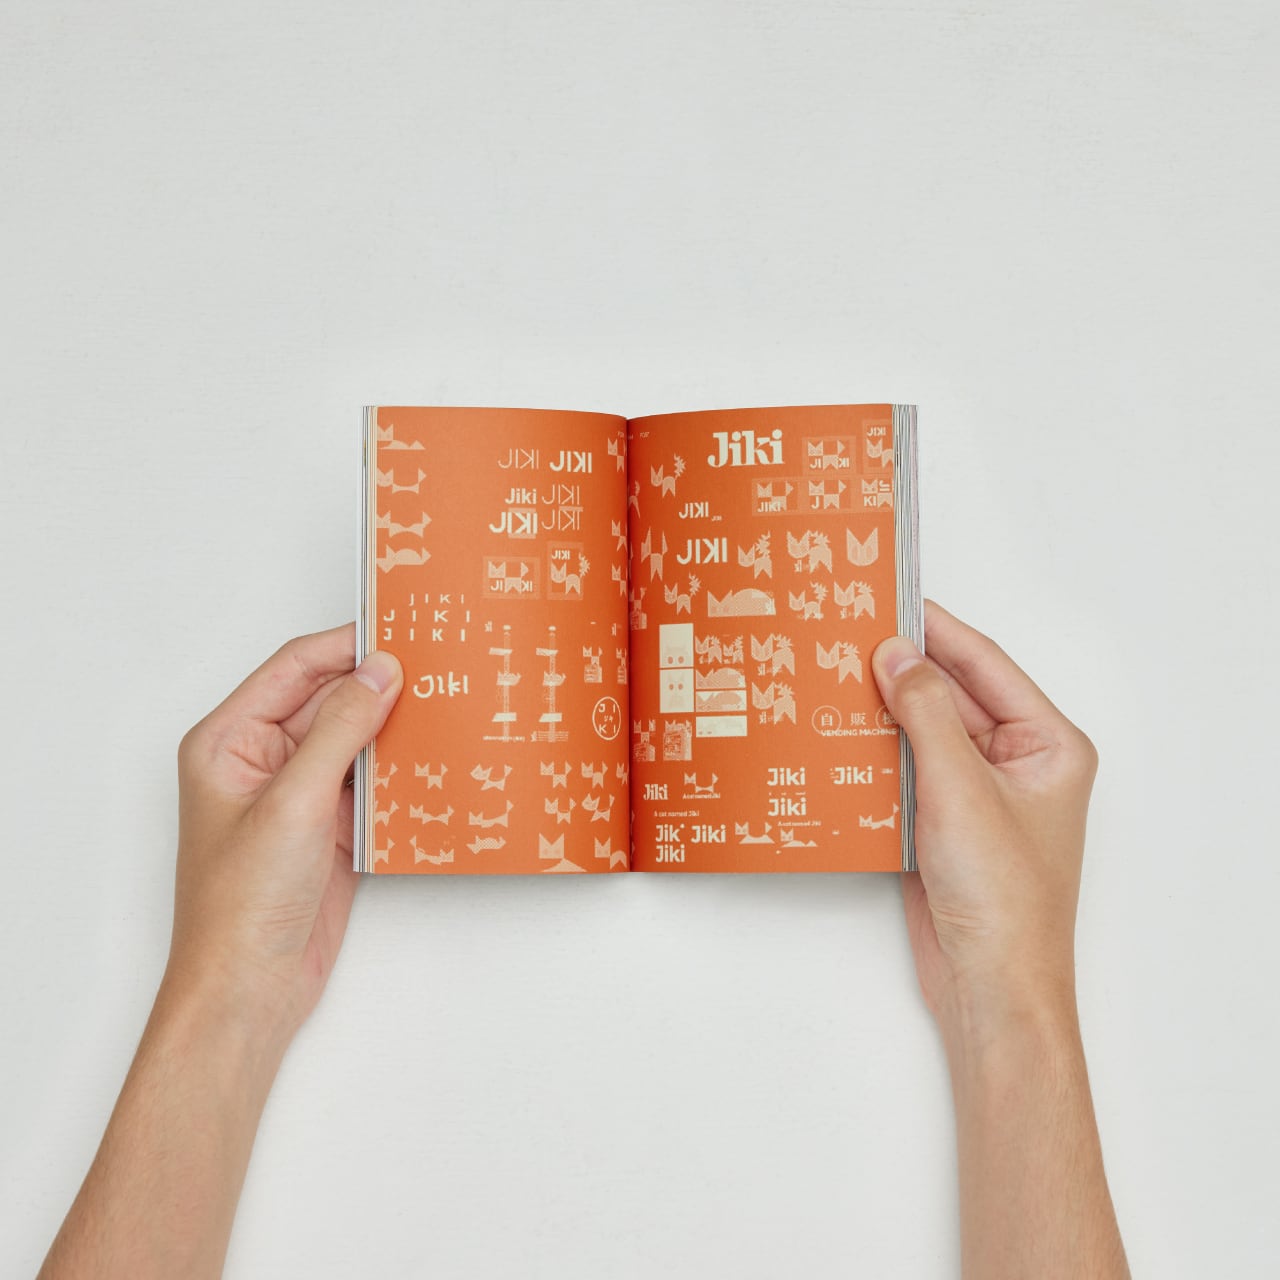 JIKI JIKI
Jiki JIKI
JIKI JIKI
JI KI
JIKI
JIKI
JIKI
JIKI
Jiki
JI
ジキ
KI
Jiki
JI KI
JIKI
JIKI
JIKI
J
JI
KI
JIKI
自 販
VENDING MACHINE
Jiki
Jiki
Jiki
A cat named Jiki
Jiki
A cat named Jiki
A cat named Jiki
Jiki
Jiki